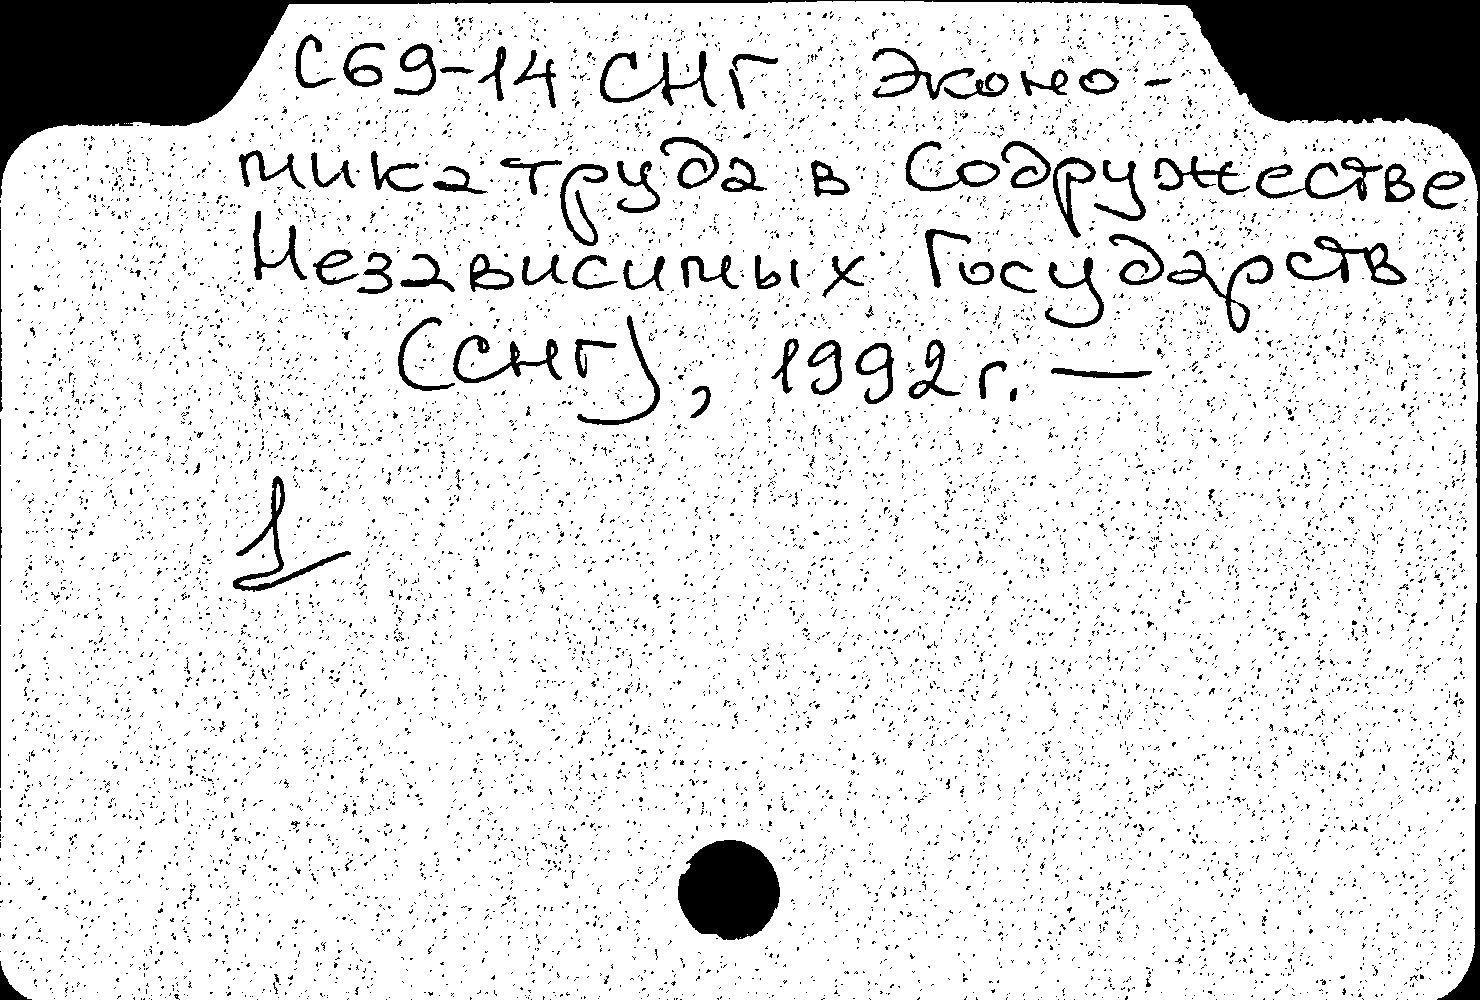 С69-14 СНГ Эконо-
мика труда в Содружестве
Независимых Государств
(СНГ), 1992 г. —
1